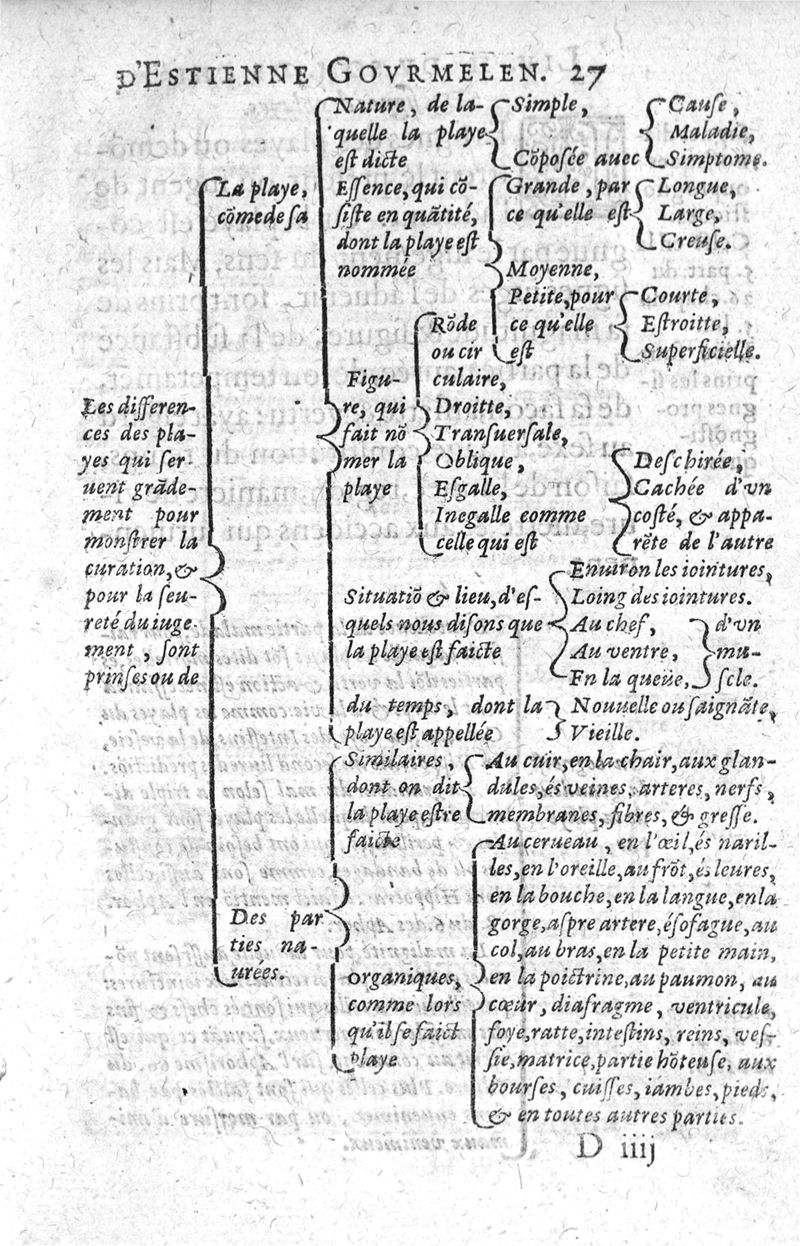 D'ESTIENNE GOVRMELEN. 27
Les differen-
ces des pla-
yes qui ser-
uent grãde-
ment pour
monstrer la
curation, &
pour la seu-
reté du iuge
ment, sont
prinses ou de
La playe,
cõme de sa
Nature, de la-
quelle la playe
est dicte
Simple,
Cõposée auec
Cause,
Maladie,
Simptome.
Essence, qui cõ-
siste en quãtité,
dont la playe est
nommée
Grande, par
ce qu'elle est
Longue,
Large,
Creuse.
Moyenne,
Petite, pour
ce qu'elle
est
Courte,
Estroitte,
Superficielle.
Figu-
re, qui
fait nõ
mer la
playe
Rõde
ou cir
culaire,
Droitte,
Transuersale,
Oblique,
Esgalle,
Inegalle comme
celle qui est
Deschirée,
Cachée d'vn
costé, & appa-
rẽte de l'autre
Situatiõ & lieu, d'es-
quels nous disons que
la playe est faicte
Enuiron les iointures,
Loing des iointures.
Au chef,
Au ventre,
En la queüe,
d'vn
mu-
scle.
du temps, dont la
playe est appellée
Nouuelle ou saignãte,
Vieille.
Des par
ties na-
urées.
Similaires,
dont on dit
la playe estre
faicte
Au cuir, en la chair, aux glan-
dules, és veines, arteres, nerfs,
membranes, fibres, & gresse.
organiques,
comme lors
qu'il se faict
playe
Au cerueau, en l'œil, és naril-
les, en l'oreille, au frõt, és leures,
en la bouche, en la langue, en la
gorge, aspre artere, ésofague, au
col, au bras, en la petite main,
en la poictrine, au paumon, au
cœur, diafragme, ventricule,
foye, ratte, intestins, reins, ves-
sie, matrice, partie hõteuse, aux
bourses, cuisses, iambes, pieds,
& en toutes autres parties.
D iiij